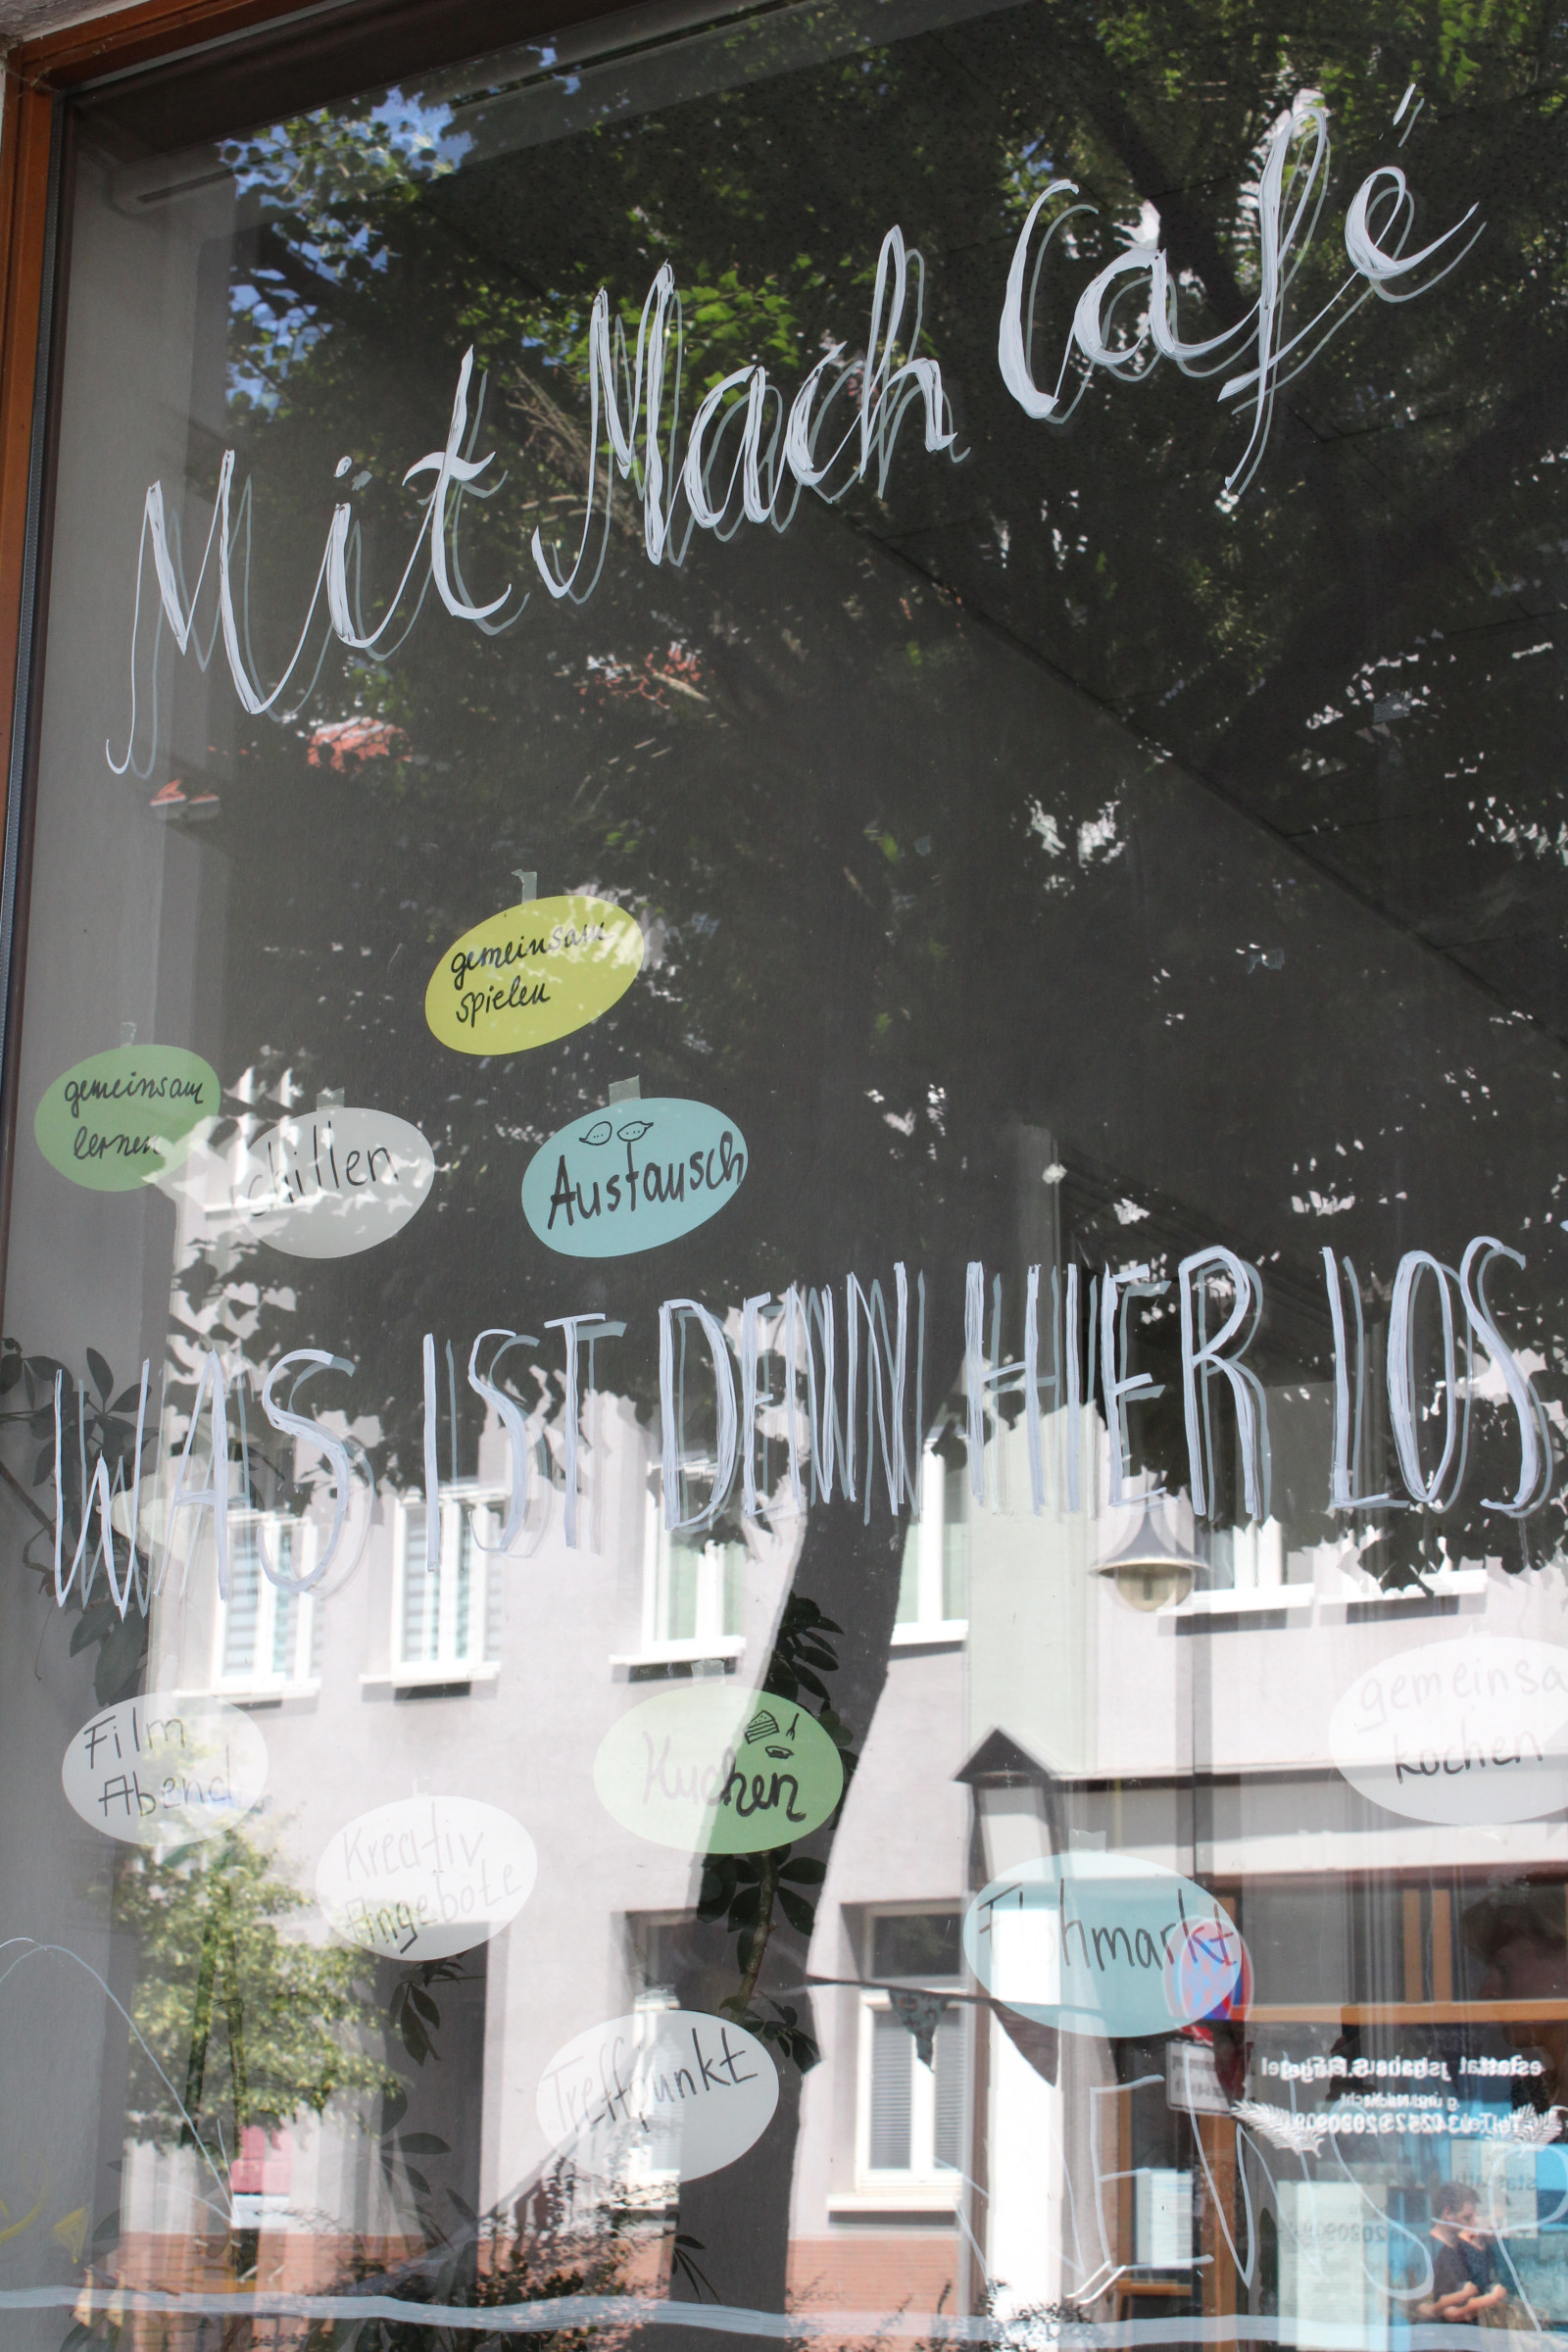 Mit Mach Café
gemeinsam
spielen
gemeinsam
lernen
chillen
Austausch
WAS IST DENN HIER LOS
Film
Abend
Kuchen
gemeinsa
kochen
Kreativ
Angebote
Flohmarkt
Treffpunkt